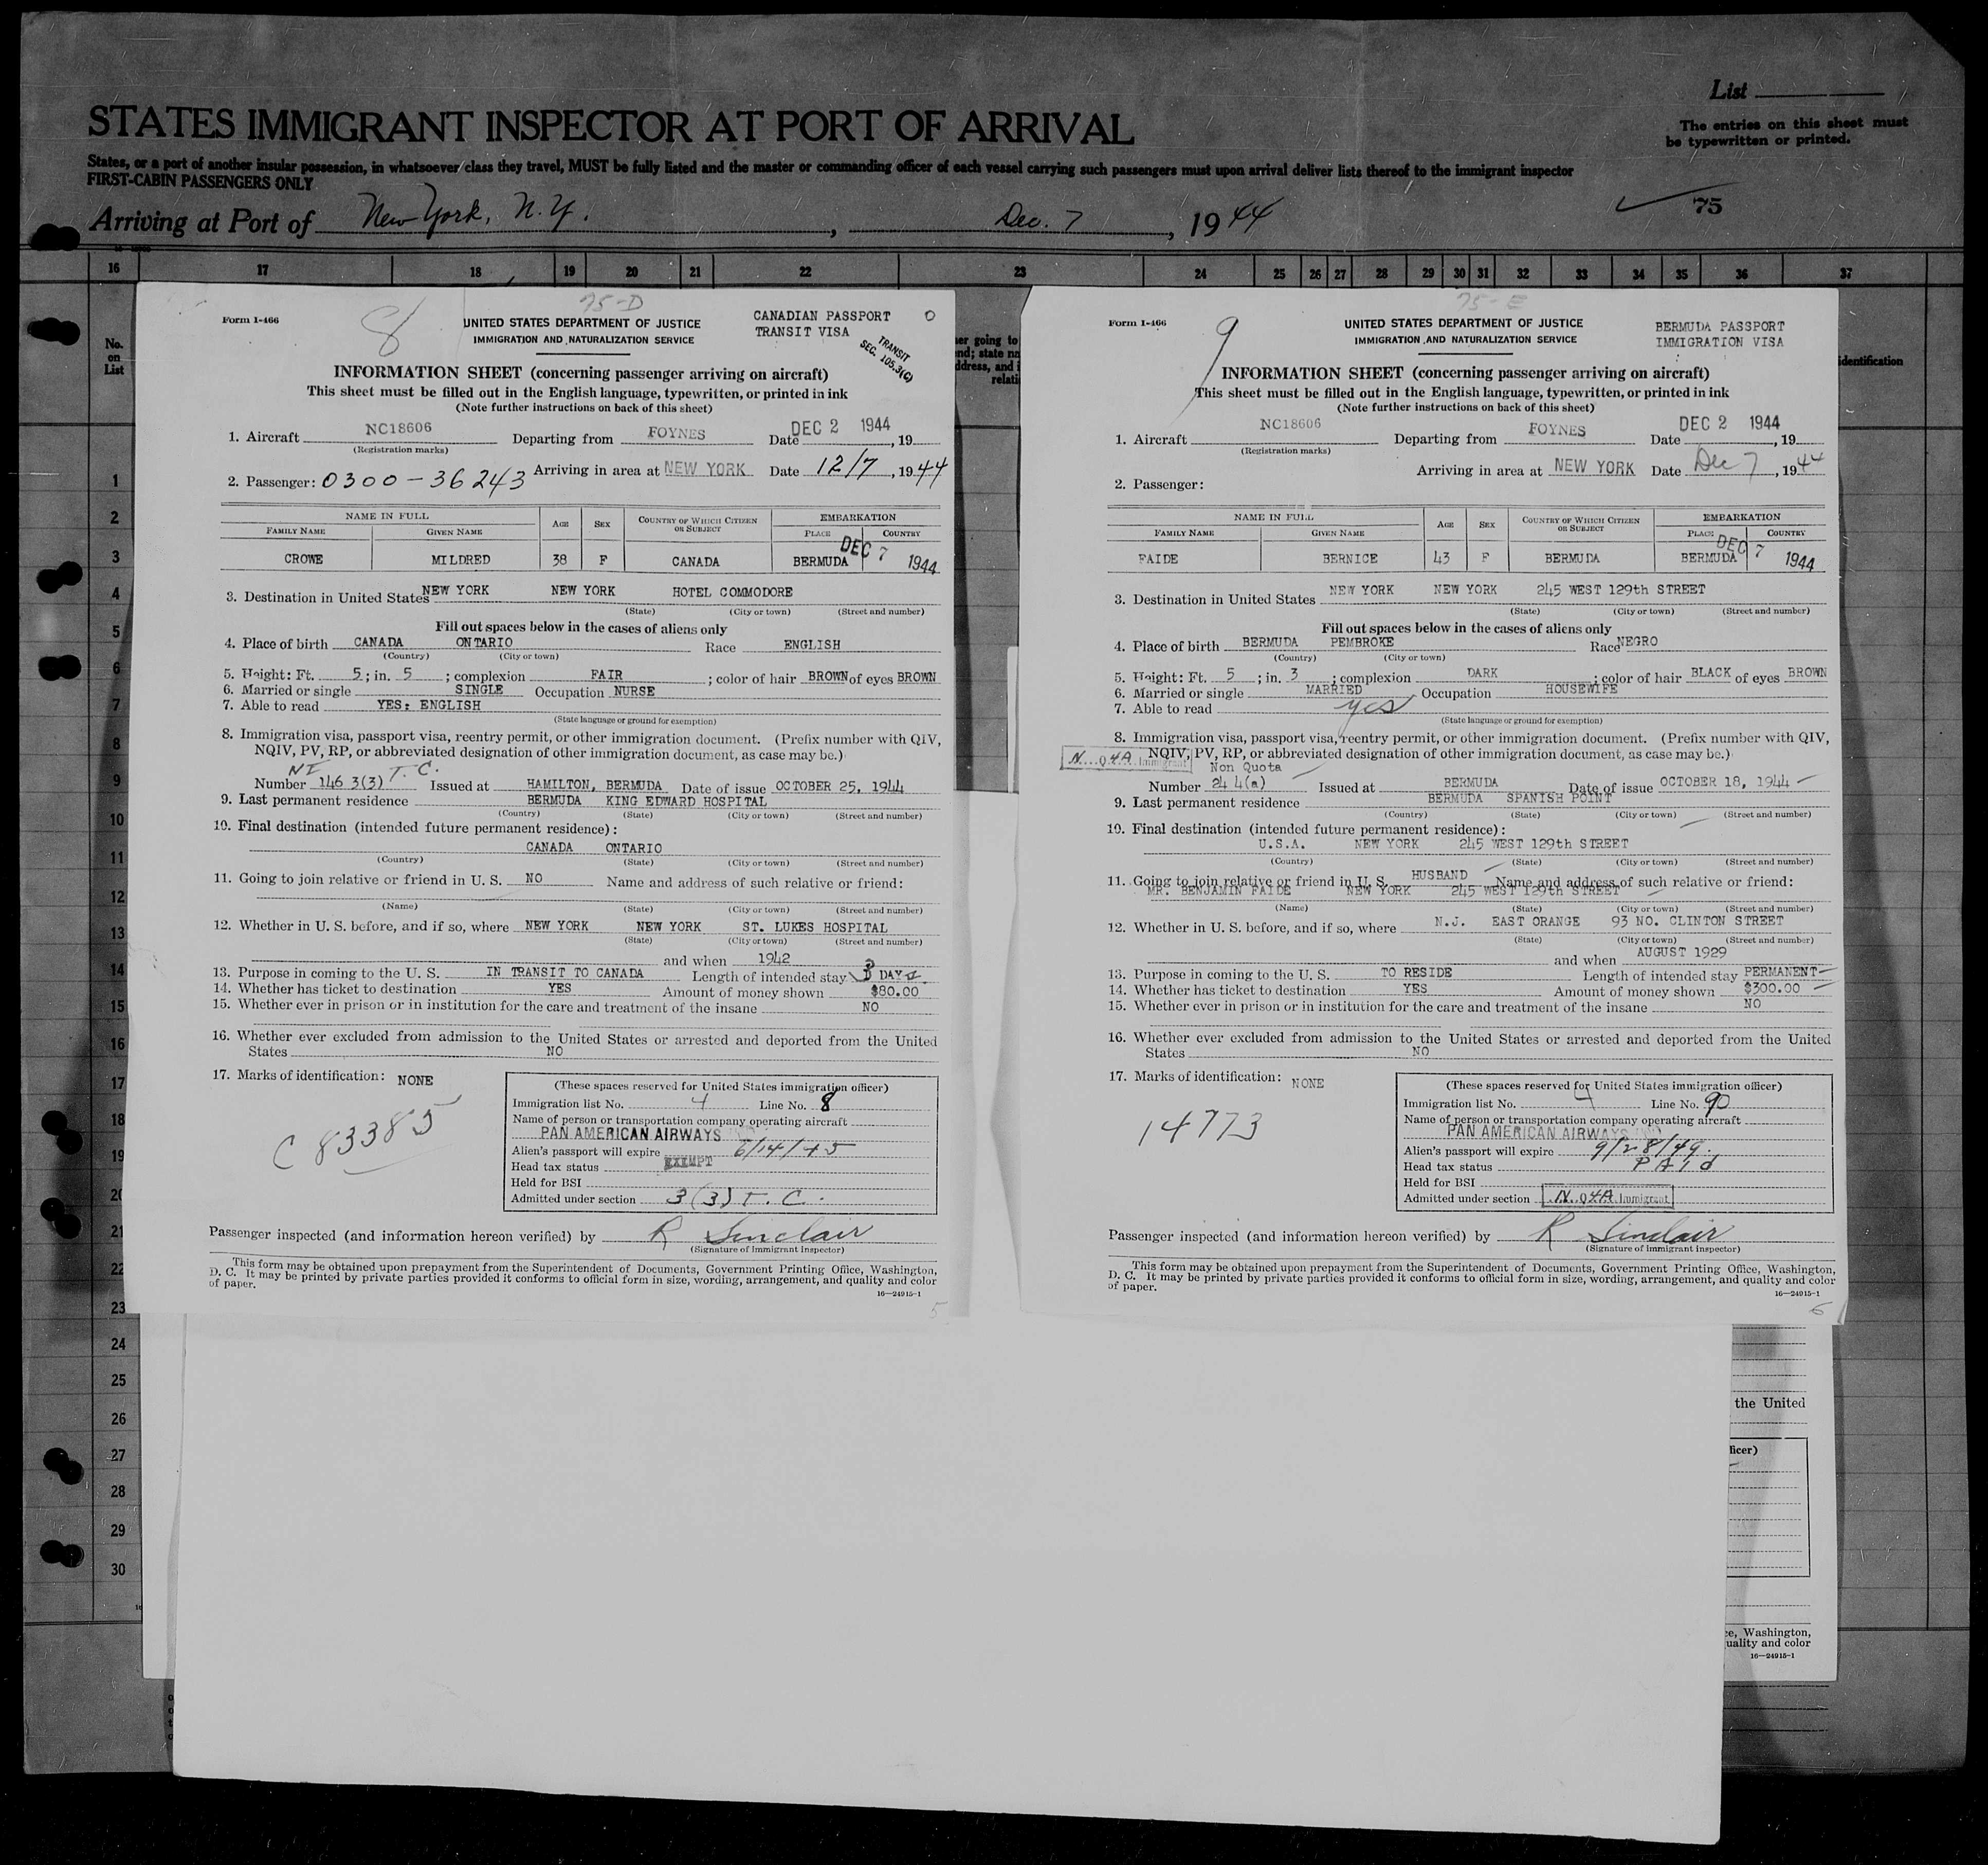 List
STATES IMMIGRANT INSPECTOR AT PORT OF ARRIVAL
The entries on this sheet must
be typewritten or printed.
States, or a port of another insular possession, in whatsoever class they travel, MUST be fully listed and the master or commanding officer of each vessel carrying such passengers must upon arrival deliver lists thereof to the immigrant inspector
FIRST-CABIN PASSENGERS ONLY
75
Arriving at Port of New York, N.Y. , Dec. 7 , 1944
16 17 18 19 20 21 22 23 24 25 26 27 28 29 30 31 32 33 34 35 36 37
No.
on
List
identification
1
2
3
4
5
6
7
8
9
10
11
12
13
14
15
16
17
18
19
20
21
22
23
24
25
26
27
28
29
30
75-D
Form I-466
8
UNITED STATES DEPARTMENT OF JUSTICE
IMMIGRATION AND NATURALIZATION SERVICE
CANADIAN PASSPORT
TRANSIT VISA
TRANSIT
SEC. 105.3(C)
INFORMATION SHEET (concerning passenger arriving on aircraft)
This sheet must be filled out in the English language, typewritten, or printed in ink
(Note further instructions on back of this sheet)
1. Aircraft NC18606 Departing from FOYNES Date DEC 2 1944, 19
(Registration marks)
Arriving in area at NEW YORK Date 12/7, 1944
2. Passenger: 0300-36243
NAME IN FULL AGE SEX COUNTRY OF WHICH CITIZEN OR SUBJECT EMBARKATION
FAMILY NAME GIVEN NAME PLACE COUNTRY
CROWE MILDRED 38 F CANADA BERMUDA DEC 7 1944
3. Destination in United States NEW YORK NEW YORK HOTEL COMMODORE
(State) (City or town) (Street and number)
Fill out spaces below in the cases of aliens only
4. Place of birth CANADA ONTARIO Race ENGLISH
(Country) (City or town)
5. Height: Ft. 5; in. 5; complexion FAIR; color of hair BROWN of eyes BROWN
6. Married or single SINGLE Occupation NURSE
7. Able to read YES: ENGLISH
(State language or ground for exemption)
8. Immigration visa, passport visa, reentry permit, or other immigration document. (Prefix number with QIV,
NQIV, PV, RP, or abbreviated designation of other immigration document, as case may be.)
NI T. C.
Number 146 3(3) Issued at HAMILTON, BERMUDA Date of issue OCTOBER 25, 1944
9. Last permanent residence BERMUDA KING EDWARD HOSPITAL
(Country) (State) (City or town) (Street and number)
10. Final destination (intended future permanent residence):
CANADA ONTARIO
(Country) (State) (City or town) (Street and number)
11. Going to join relative or friend in U. S. NO Name and address of such relative or friend:
(Name) (State) (City or town) (Street and number)
12. Whether in U. S. before, and if so, where NEW YORK NEW YORK ST. LUKES HOSPITAL
(State) (City or town) (Street and number)
and when 1942
13. Purpose in coming to the U. S. IN TRANSIT TO CANADA Length of intended stay 3 DAYS
14. Whether has ticket to destination YES Amount of money shown $80.00
15. Whether ever in prison or in institution for the care and treatment of the insane NO
16. Whether ever excluded from admission to the United States or arrested and deported from the United
States NO
17. Marks of identification: NONE
C 83385
(These spaces reserved for United States immigration officer)
Immigration list No. 4 Line No. 8
Name of person or transportation company operating aircraft
PAN AMERICAN AIRWAYS
Alien's passport will expire 6/14/45
Head tax status EXEMPT
Held for BSI
Admitted under section 3(3) T. C.
Passenger inspected (and information hereon verified) by R Sinclair
(Signature of immigrant inspector)
This form may be obtained upon prepayment from the Superintendent of Documents, Government Printing Office, Washington,
D. C. It may be printed by private parties provided it conforms to official form in size, wording, arrangement, and quality and color
of paper.
16—24915-1
5
75-E
Form I-466
9
UNITED STATES DEPARTMENT OF JUSTICE
IMMIGRATION AND NATURALIZATION SERVICE
BERMUDA PASSPORT
IMMIGRATION VISA
INFORMATION SHEET (concerning passenger arriving on aircraft)
This sheet must be filled out in the English language, typewritten, or printed in ink
(Note further instructions on back of this sheet)
1. Aircraft NC18606 Departing from FOYNES Date DEC 2 1944, 19
(Registration marks)
Arriving in area at NEW YORK Date Dec 7, 1944
2. Passenger:
NAME IN FULL AGE SEX COUNTRY OF WHICH CITIZEN OR SUBJECT EMBARKATION
FAMILY NAME GIVEN NAME PLACE COUNTRY
FAIDE BERNICE 43 F BERMUDA BERMUDA DEC 7 1944
3. Destination in United States NEW YORK NEW YORK 245 WEST 129th STREET
(State) (City or town) (Street and number)
Fill out spaces below in the cases of aliens only
4. Place of birth BERMUDA PEMBROKE Race NEGRO
(Country) (City or town)
5. Height: Ft. 5; in. 3; complexion DARK; color of hair BLACK of eyes BROWN
6. Married or single MARRIED Occupation HOUSEWIFE
7. Able to read yes
(State language or ground for exemption)
8. Immigration visa, passport visa, reentry permit, or other immigration document. (Prefix number with QIV,
NQIV, PV, RP, or abbreviated designation of other immigration document, as case may be.)
N. Q 4A Immigrant
Non Quota
Number 24 4(a) Issued at BERMUDA Date of issue OCTOBER 18, 1944
9. Last permanent residence BERMUDA SPANISH POINT
(Country) (State) (City or town) (Street and number)
10. Final destination (intended future permanent residence):
U.S.A. NEW YORK 245 WEST 129th STREET
(Country) (State) (City or town) (Street and number)
11. Going to join relative or friend in U. S. HUSBAND Name and address of such relative or friend:
MR. BENJAMIN FAIDE NEW YORK 245 WEST 129th STREET
(Name) (State) (City or town) (Street and number)
12. Whether in U. S. before, and if so, where N.J. EAST ORANGE 93 NO. CLINTON STREET
(State) (City or town) (Street and number)
and when AUGUST 1929
13. Purpose in coming to the U. S. TO RESIDE Length of intended stay PERMANENT
14. Whether has ticket to destination YES Amount of money shown $300.00
15. Whether ever in prison or in institution for the care and treatment of the insane NO
16. Whether ever excluded from admission to the United States or arrested and deported from the United
States NO
17. Marks of identification: NONE
14773
(These spaces reserved for United States immigration officer)
Immigration list No. 4 Line No. 9
Name of person or transportation company operating aircraft
PAN AMERICAN AIRWAYS
Alien's passport will expire 9/28/49
Head tax status PAId
Held for BSI
Admitted under section N. Q 4A Immigrant
Passenger inspected (and information hereon verified) by R Sinclair
(Signature of immigrant inspector)
This form may be obtained upon prepayment from the Superintendent of Documents, Government Printing Office, Washington,
D. C. It may be printed by private parties provided it conforms to official form in size, wording, arrangement, and quality and color
of paper.
16—24915-1
6
the United
ficer)
ce, Washington,
uality and color
16—24915-1